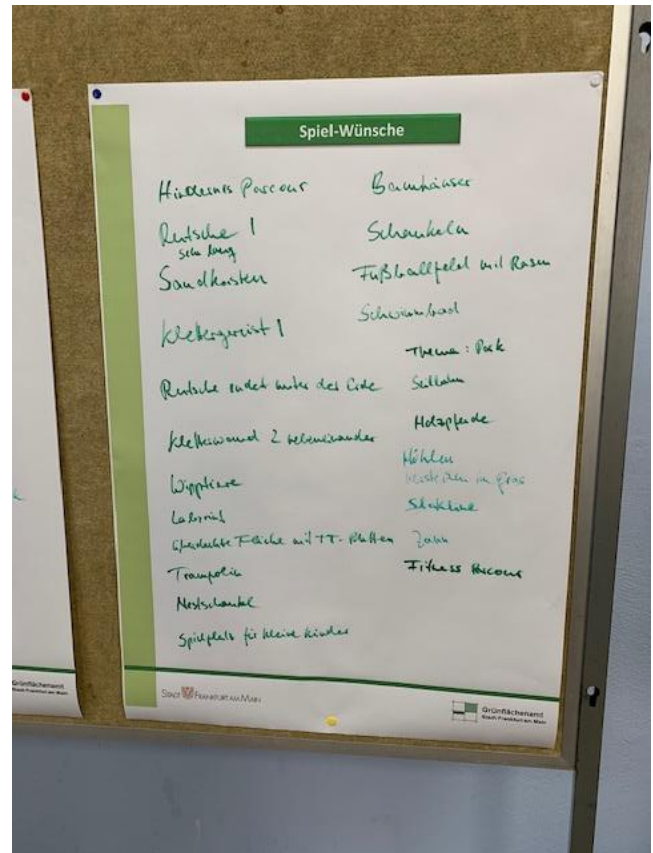 Spiel-Wünsche
Hindernis Parcour
Rutsche 1
sehr lang
Sandkasten
Klettergerüst 1
Rutsche endet unter der Erde
Kletterwand 2 nebeneinander
Wipptiere
Labyrint
überdachte Fläche mit TT-Platten
Trampolin
Nestschaukel
Spielplatz für kleine Kinder
Baumhäuser
Schaukeln
Fußballfeld mit Rasen
Schwimmbad
Thema: Park
Seilbahn
Holzpferde
Höhlen
verstecken im Gras
Slakline
Zaun
Fitness Parcour
STADT FRANKFURT AM MAIN
Grünflächenamt
Stadt Frankfurt am Main
Grünflächenamt
Stadt Frankfurt am Main